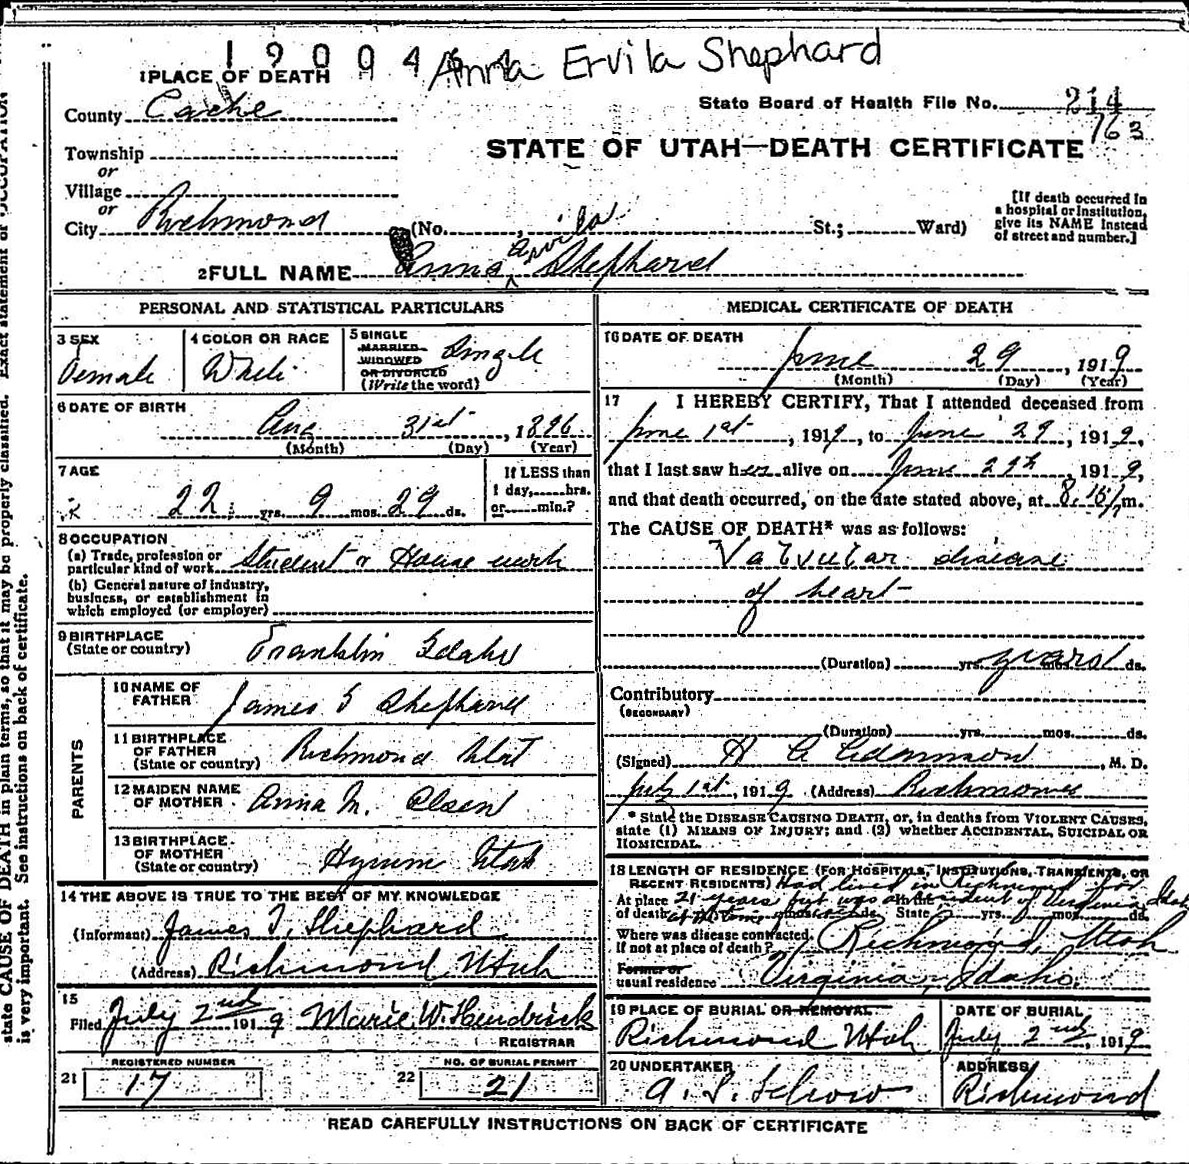 1 9 0 0 4 Anna Ervila Shephard
1 PLACE OF DEATH
County Cache
State Board of Health File No. 214
763
Township
or
STATE OF UTAH—DEATH CERTIFICATE
Village
or
City Richmond (No. St.; Ward)
[If death occurred in a hospital or institution, give its NAME instead of street and number.]
2 FULL NAME Anna Ervila Shephard
PERSONAL AND STATISTICAL PARTICULARS
3 SEX Female
4 COLOR OR RACE White
5 SINGLE MARRIED WIDOWED OR DIVORCED (Write the word) Single
6 DATE OF BIRTH
Aug 31st, 1896
(Month) (Day) (Year)
7 AGE
22 yrs. 9 mos. 29 ds.
If LESS than 1 day, hrs. or min.?
8 OCCUPATION
(a) Trade, profession or particular kind of work Student & House work
(b) General nature of industry, business, or establishment in which employed (or employer)
9 BIRTHPLACE
(State or country) Franklin Idaho
PARENTS
10 NAME OF FATHER James T Shephard
11 BIRTHPLACE OF FATHER (State or country) Richmond Utah
12 MAIDEN NAME OF MOTHER Anna M. Olsen
13 BIRTHPLACE OF MOTHER (State or country) Hyrum Utah
14 THE ABOVE IS TRUE TO THE BEST OF MY KNOWLEDGE
(Informant) James T. Shephard
(Address) Richmond Utah
15
Filed July 2nd 1919 Marie W. Hendricks
REGISTRAR
REGISTERED NUMBER
21 17
NO. OF BURIAL PERMIT
22 21
MEDICAL CERTIFICATE OF DEATH
16 DATE OF DEATH
June 29, 1919
(Month) (Day) (Year)
17 I HEREBY CERTIFY, That I attended deceased from
June 1st, 1919, to June 29, 1919,
that I last saw her alive on June 29th 1919,
and that death occurred, on the date stated above, at 8.15 m.
The CAUSE OF DEATH* was as follows:
Valvular disease
of heart
(Duration) yrs. mos. ds.
Contributory
(SECONDARY)
(Duration) yrs. mos. ds.
(Signed) A C Adamson, M. D.
July 1st, 1919 (Address) Richmond
* State the DISEASE CAUSING DEATH, or, in deaths from VIOLENT CAUSES, state (1) MEANS OF INJURY; and (2) whether ACCIDENTAL, SUICIDAL OR HOMICIDAL.
18 LENGTH OF RESIDENCE (FOR HOSPITALS, INSTITUTIONS, TRANSIENTS, OR RECENT RESIDENTS) Had lived in Richmond for
At place of death 21 years but was a resident of Virginia Idaho at the time In the State yrs. mos. ds.
Where was disease contracted, If not at place of death? Richmond, Utah
Former or usual residence Virginia, Idaho.
19 PLACE OF BURIAL OR REMOVAL
Richmond Utah
DATE OF BURIAL
July 2nd, 1919
20 UNDERTAKER
ADDRESS
Richmond
READ CAREFULLY INSTRUCTIONS ON BACK OF CERTIFICATE
state CAUSE OF DEATH in plain terms, so that it may be properly classified. Exact statement of OCCUPATION
is very important. See instructions on back of certificate.